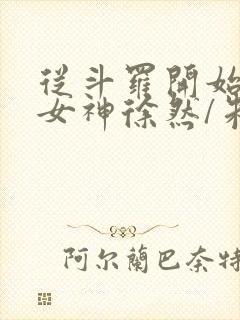 從斗羅開始
女神徐然/朱
阿尔蘭巴奈特